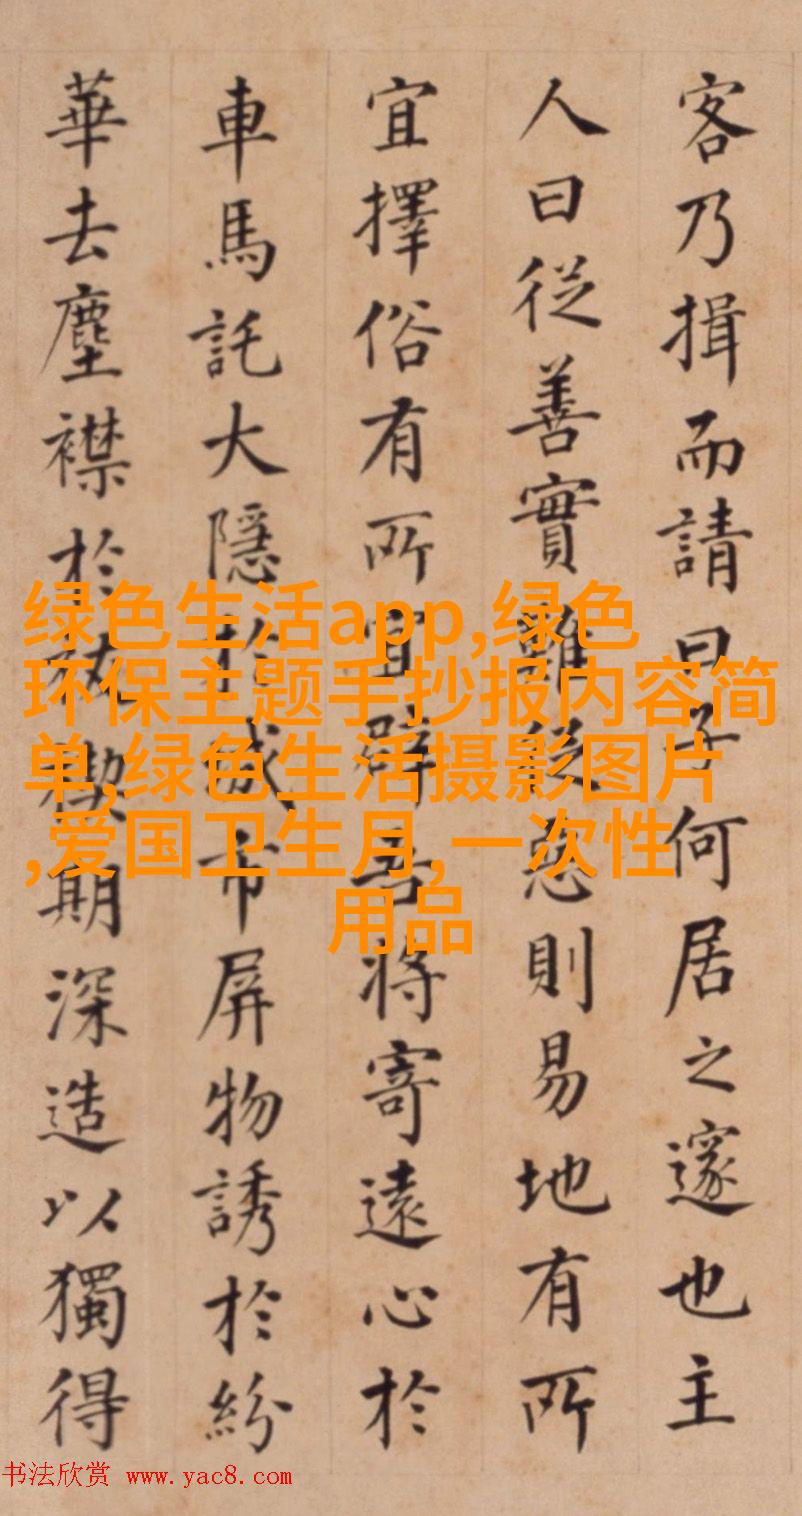 客乃揖而請曰子何居之邃也主
人曰從善實難從惡則易地有所
宜擇俗有所宜辟吾將寄遠心於
車馬託大隱於城市屏物誘於紛
華去塵襟於期深造以獨得
绿色生活app,绿色
环保主题手抄报内容简
单,绿色生活摄影图片
,爱国卫生月,一次性
用品
书法欣赏 www.yac8.com